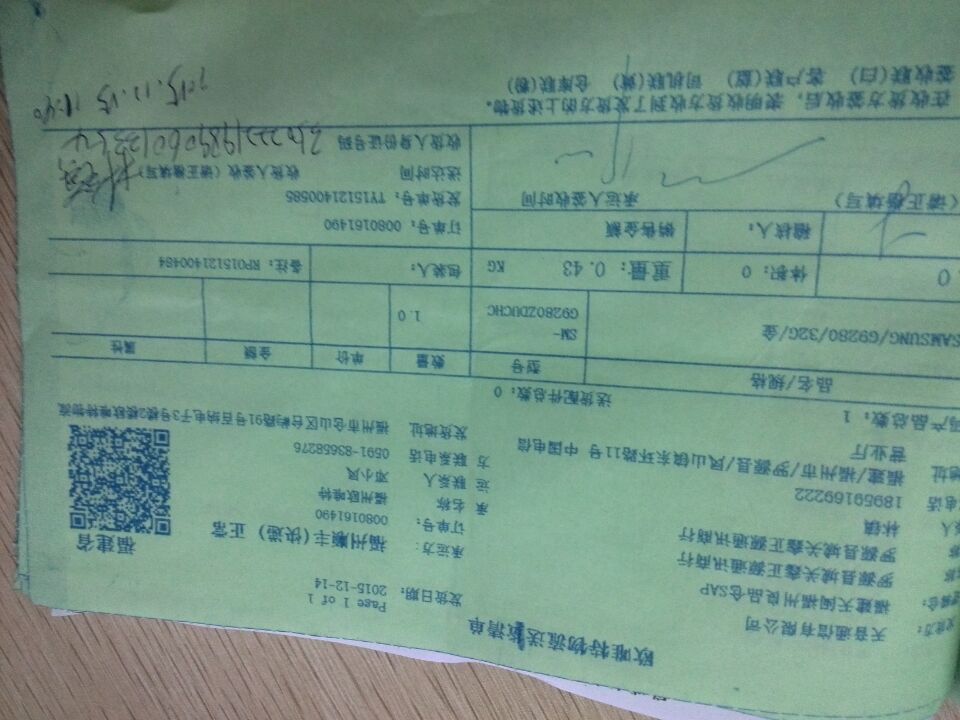 欧唯特物流送货清单
Page 1 of 1
天音通信有限公司
发货日期：
2015-12-14
福建天闽福州良品仓SAP
罗源县城关鑫正源通讯商行
承运方：
福州顺丰(快递) 正常
福建省
罗源县城关鑫正源通讯商行
订单号：
0080161490
林镇
承
名称
福州欧唯特
电话
18959169222
运
联系人
邓小凤
地址
福建/福州市/罗源县/凤山镇东环路11号 中国电信
方
联系电话
0591-83658276
营业厅
发货地址
福州市仓山区台屿路91号百纳电子3号2楼欧唯特物流
产品总数：1
送货配件总数：0
品名/规格
型号
数量
单价
金额
属性
SAMSUNG/G9280/32G/金
SM-
G9280ZDUCHC
1.0
体积：0
重量：0.43
KG
包装人：
备注：RP015121400484
稽核人：
销售金额
订单号：0080161490
发货单号：TY15121400585
（请正楷填写）
承运人签收时间
送达时间
收货人签收（请正楷填写）
收货人身份证号码
在收货方签收后，表明收货方收到了发货方的上述货物。
签收联(白) 客户联(蓝) 司机联(黄) 仓库联(粉)